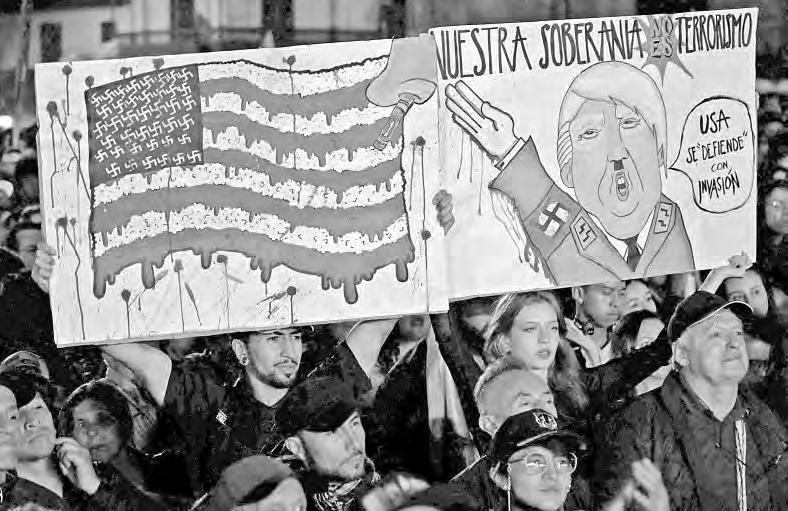 NUESTRA SOBERANIA NO ES TERRORISMO
USA
SE "DEFIENDE"
CON
INVASIÓN